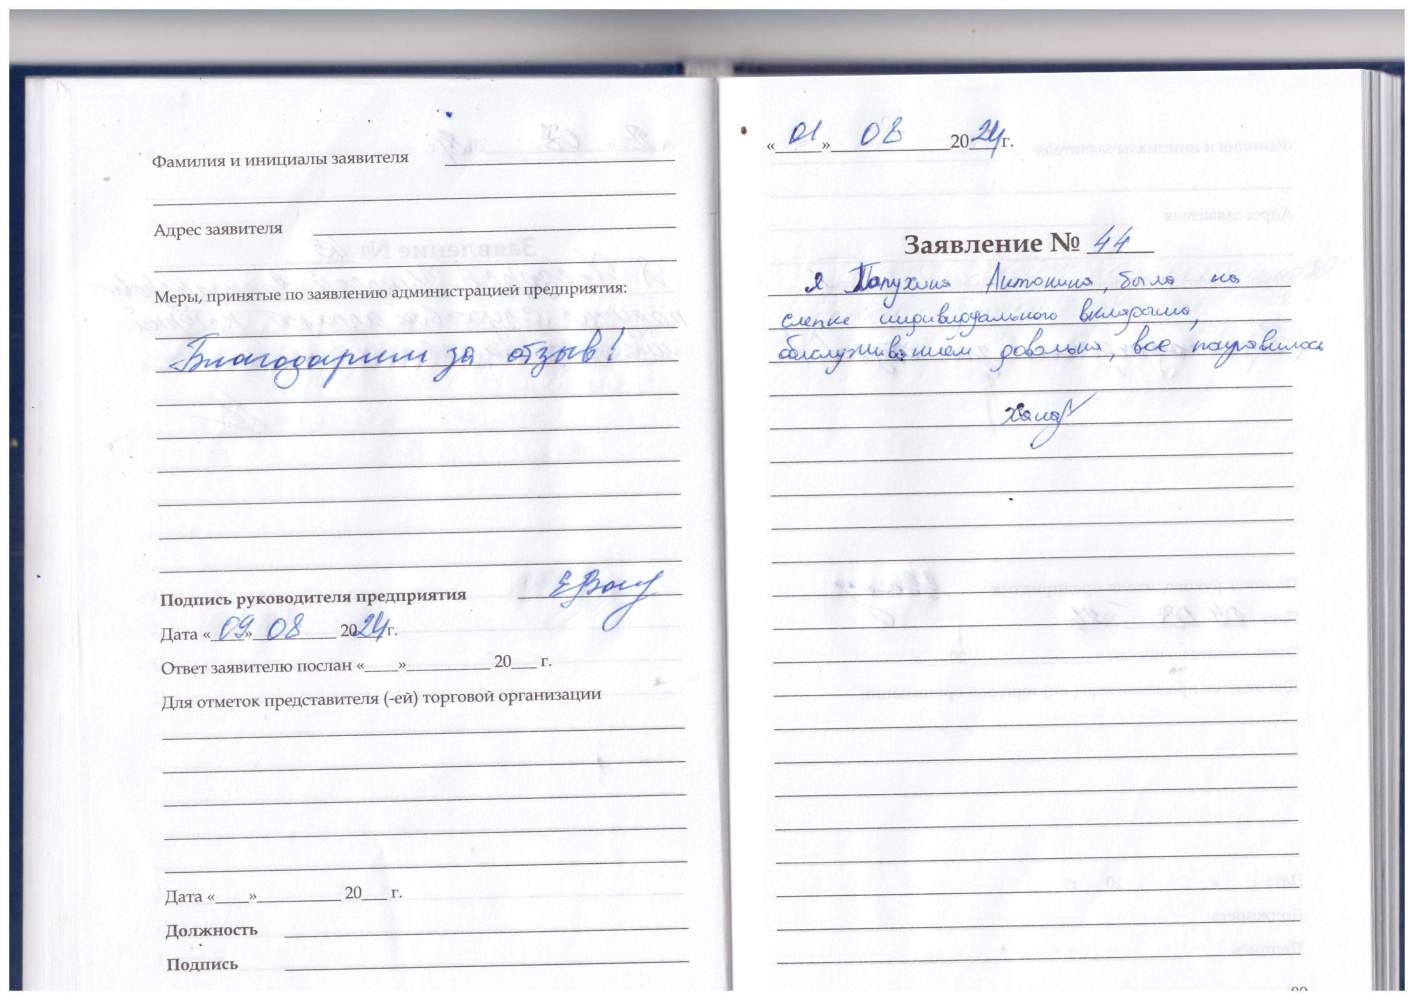 Фамилия и инициалы заявителя
Адрес заявителя
Меры, принятые по заявлению администрацией предприятия:
Благодарим за отзыв!
Подпись руководителя предприятия
Дата «09» 08 2024 г.
Ответ заявителю послан «____»__________ 20___ г.
Для отметок представителя (-ей) торговой организации
Дата «____»__________ 20___ г.
Должность
Подпись
«01» 08 2024 г.
Заявление № 44
Я Антонина, была на
слепке индивидуального вкладыша,
обслуживанием довольна, все понравилось